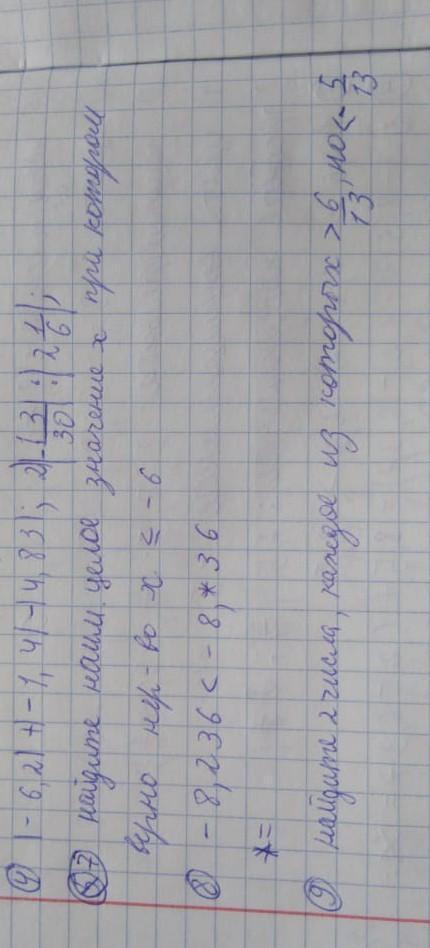 ④ |-6,2|+|-1,4|-|4,83|; 2) |-\frac{3}{30}|:|2\frac{1}{6}|;
⑦ найдите наим. целое значение x при котором
верно нер-во x ≤ -6
⑧ -8,236 < -8,*36
*=
⑨ найдите 2 числа, каждое из которых > \frac{6}{13}, но < -\frac{5}{13}